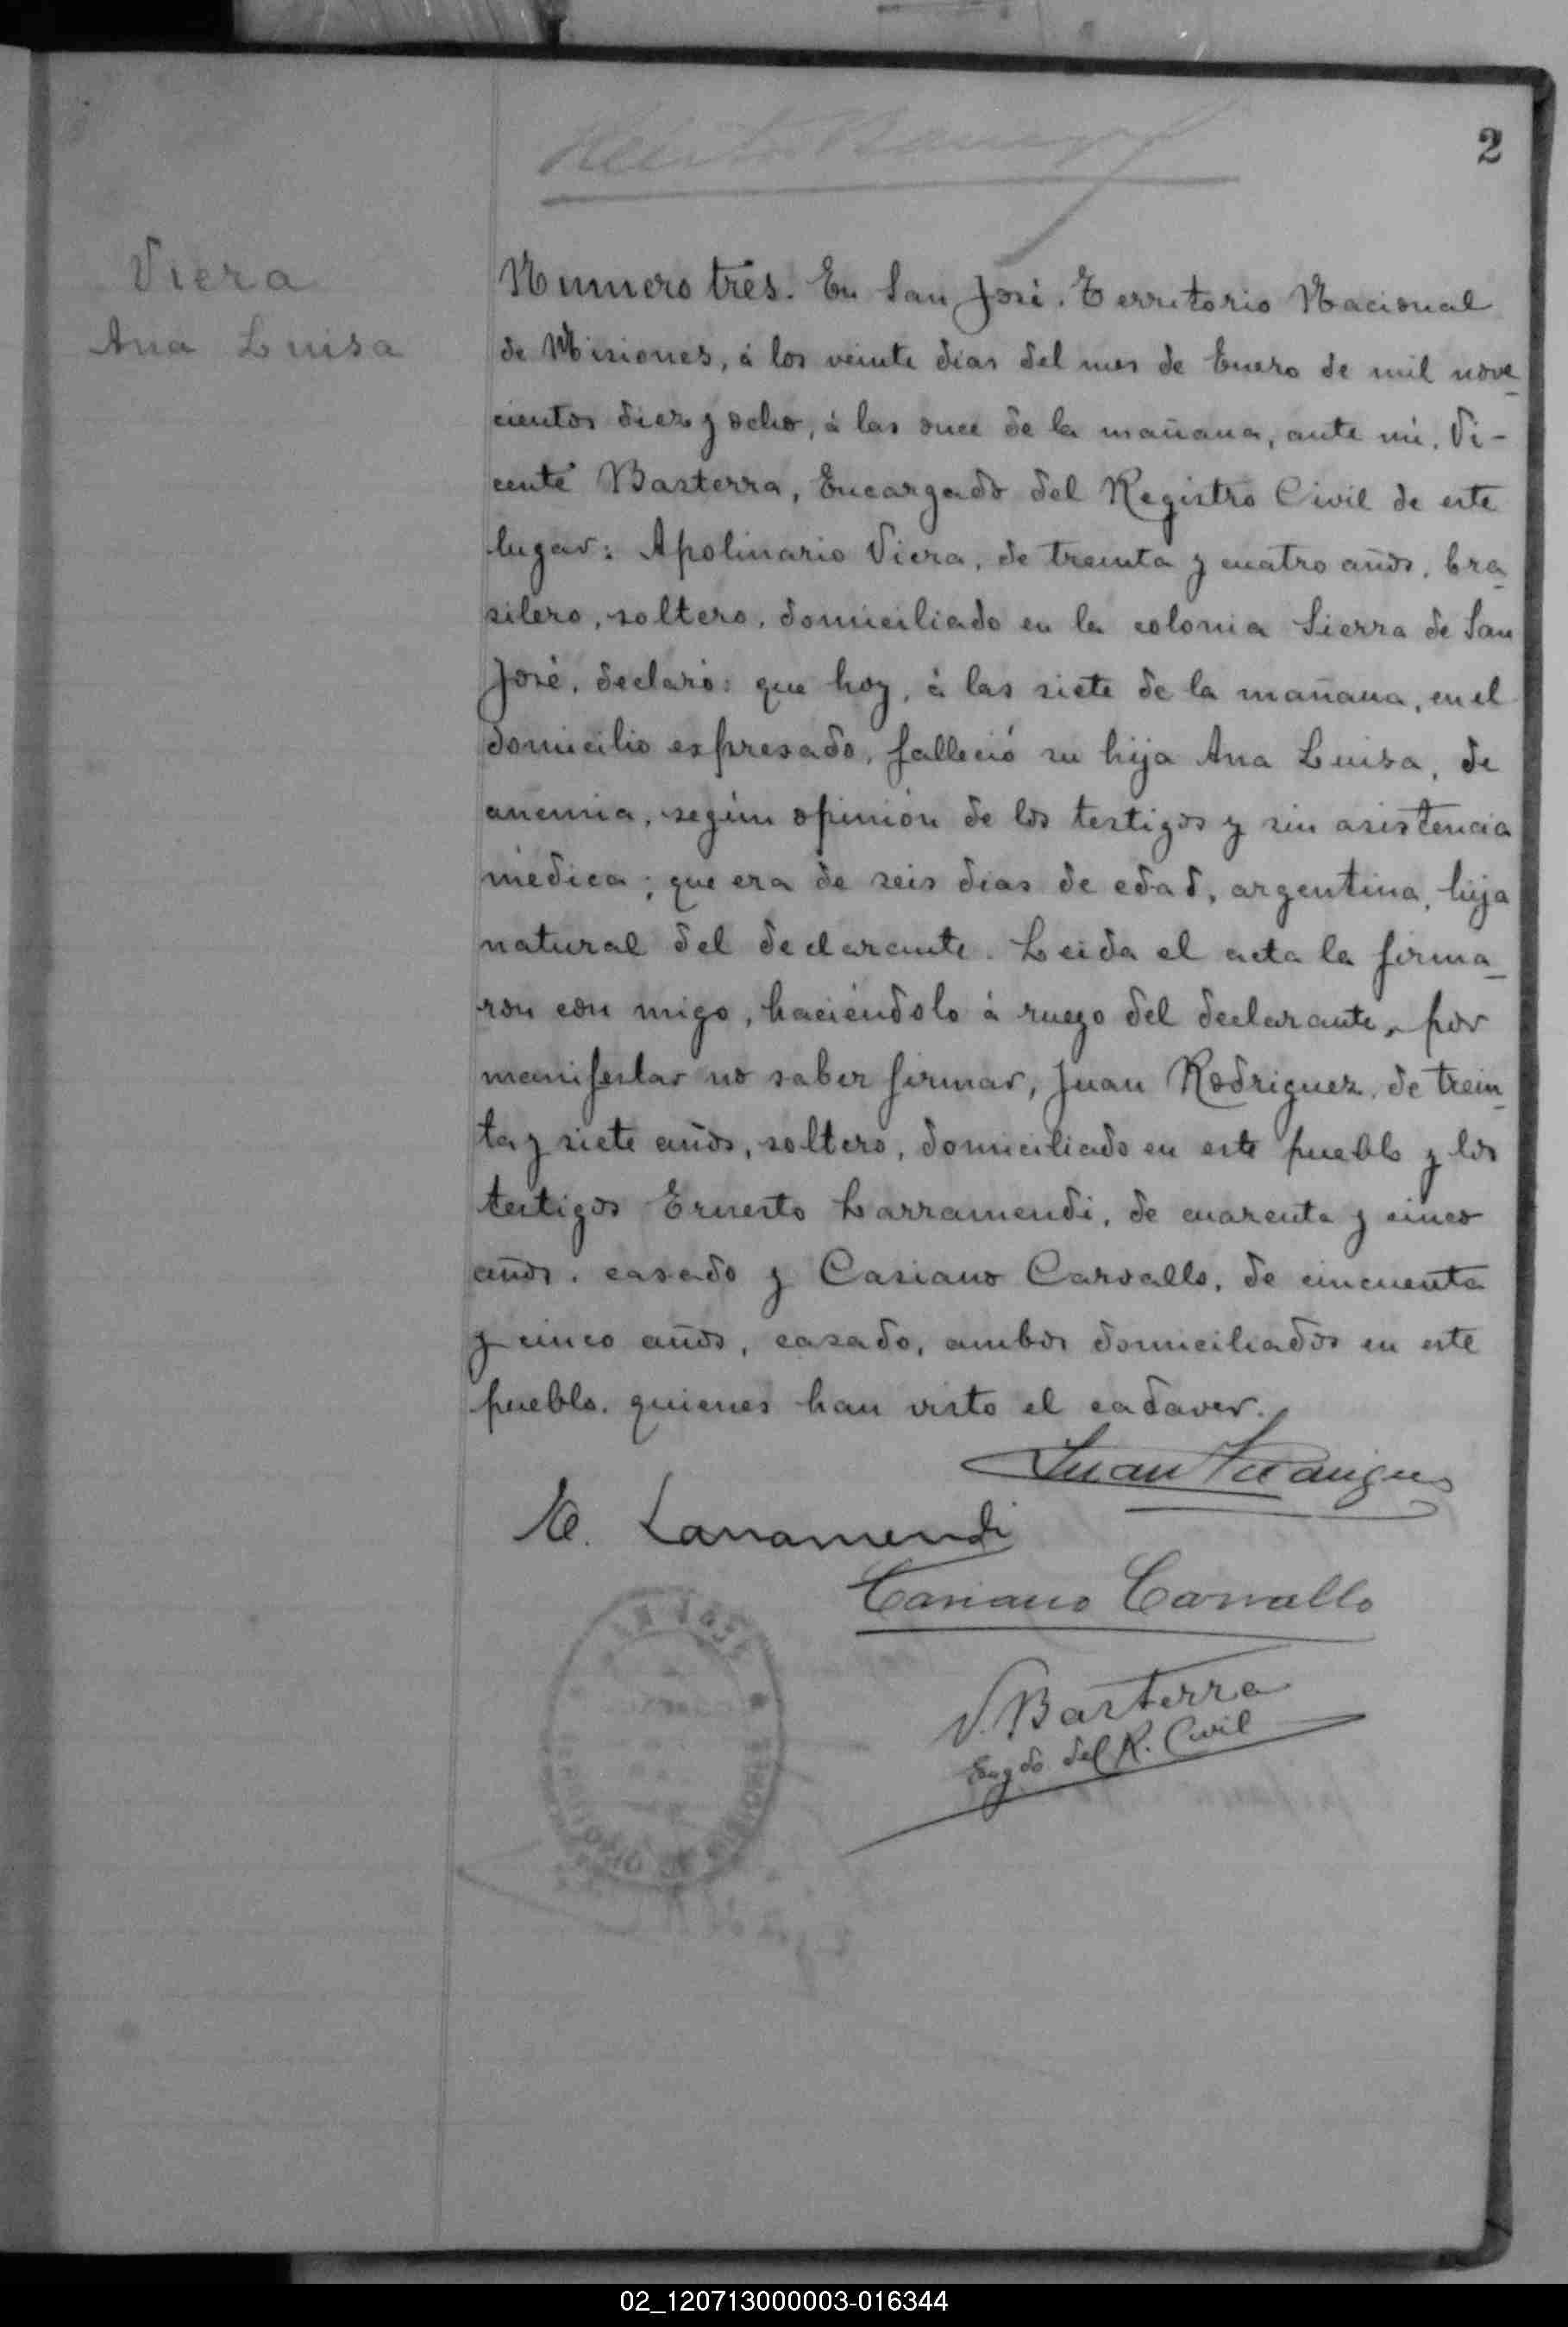 2
Viera
Ana Luisa
Numero tres. En San José, Territorio Nacional
de Misiones, á los veinte dias del mes de Enero de mil nove-
cientos diez y ocho, á las once de la mañana, ante mi, Vi-
cente Basterra, Encargado del Registro Civil de este
lugar: Apolinario Viera, de treinta y cuatro años, bra-
silero, soltero, domiciliado en la colonia Sierra de San
José, declaró: que hoy, á las siete de la mañana, en el
domicilio espresado, falleció su hija Ana Luisa, de
anemia, según opinión de los testigos y sin asistencia
médica; que era de seis dias de edad, argentina, hija
natural del declarante. Leida el acta la firma-
ron con migo, haciéndolo á ruego del declarante, por
manifestar no saber firmar, Juan Rodriguez, de trein-
ta y siete años, soltero, domiciliado en este pueblo y los
testigos Ernesto Larramendi, de cuarenta y cinco
años, casado y Casiano Carvallo, de cincuenta
y cinco años, casado, ambos domiciliados en este
pueblo, quienes han visto el cadaver.
Juan
E. Larramendi
Casiano Carvallo
SAN JOSÉ
TERRITORIO DE MISIONES
V. Basterra
Engdo del R. Civil
02_120713000003-016344